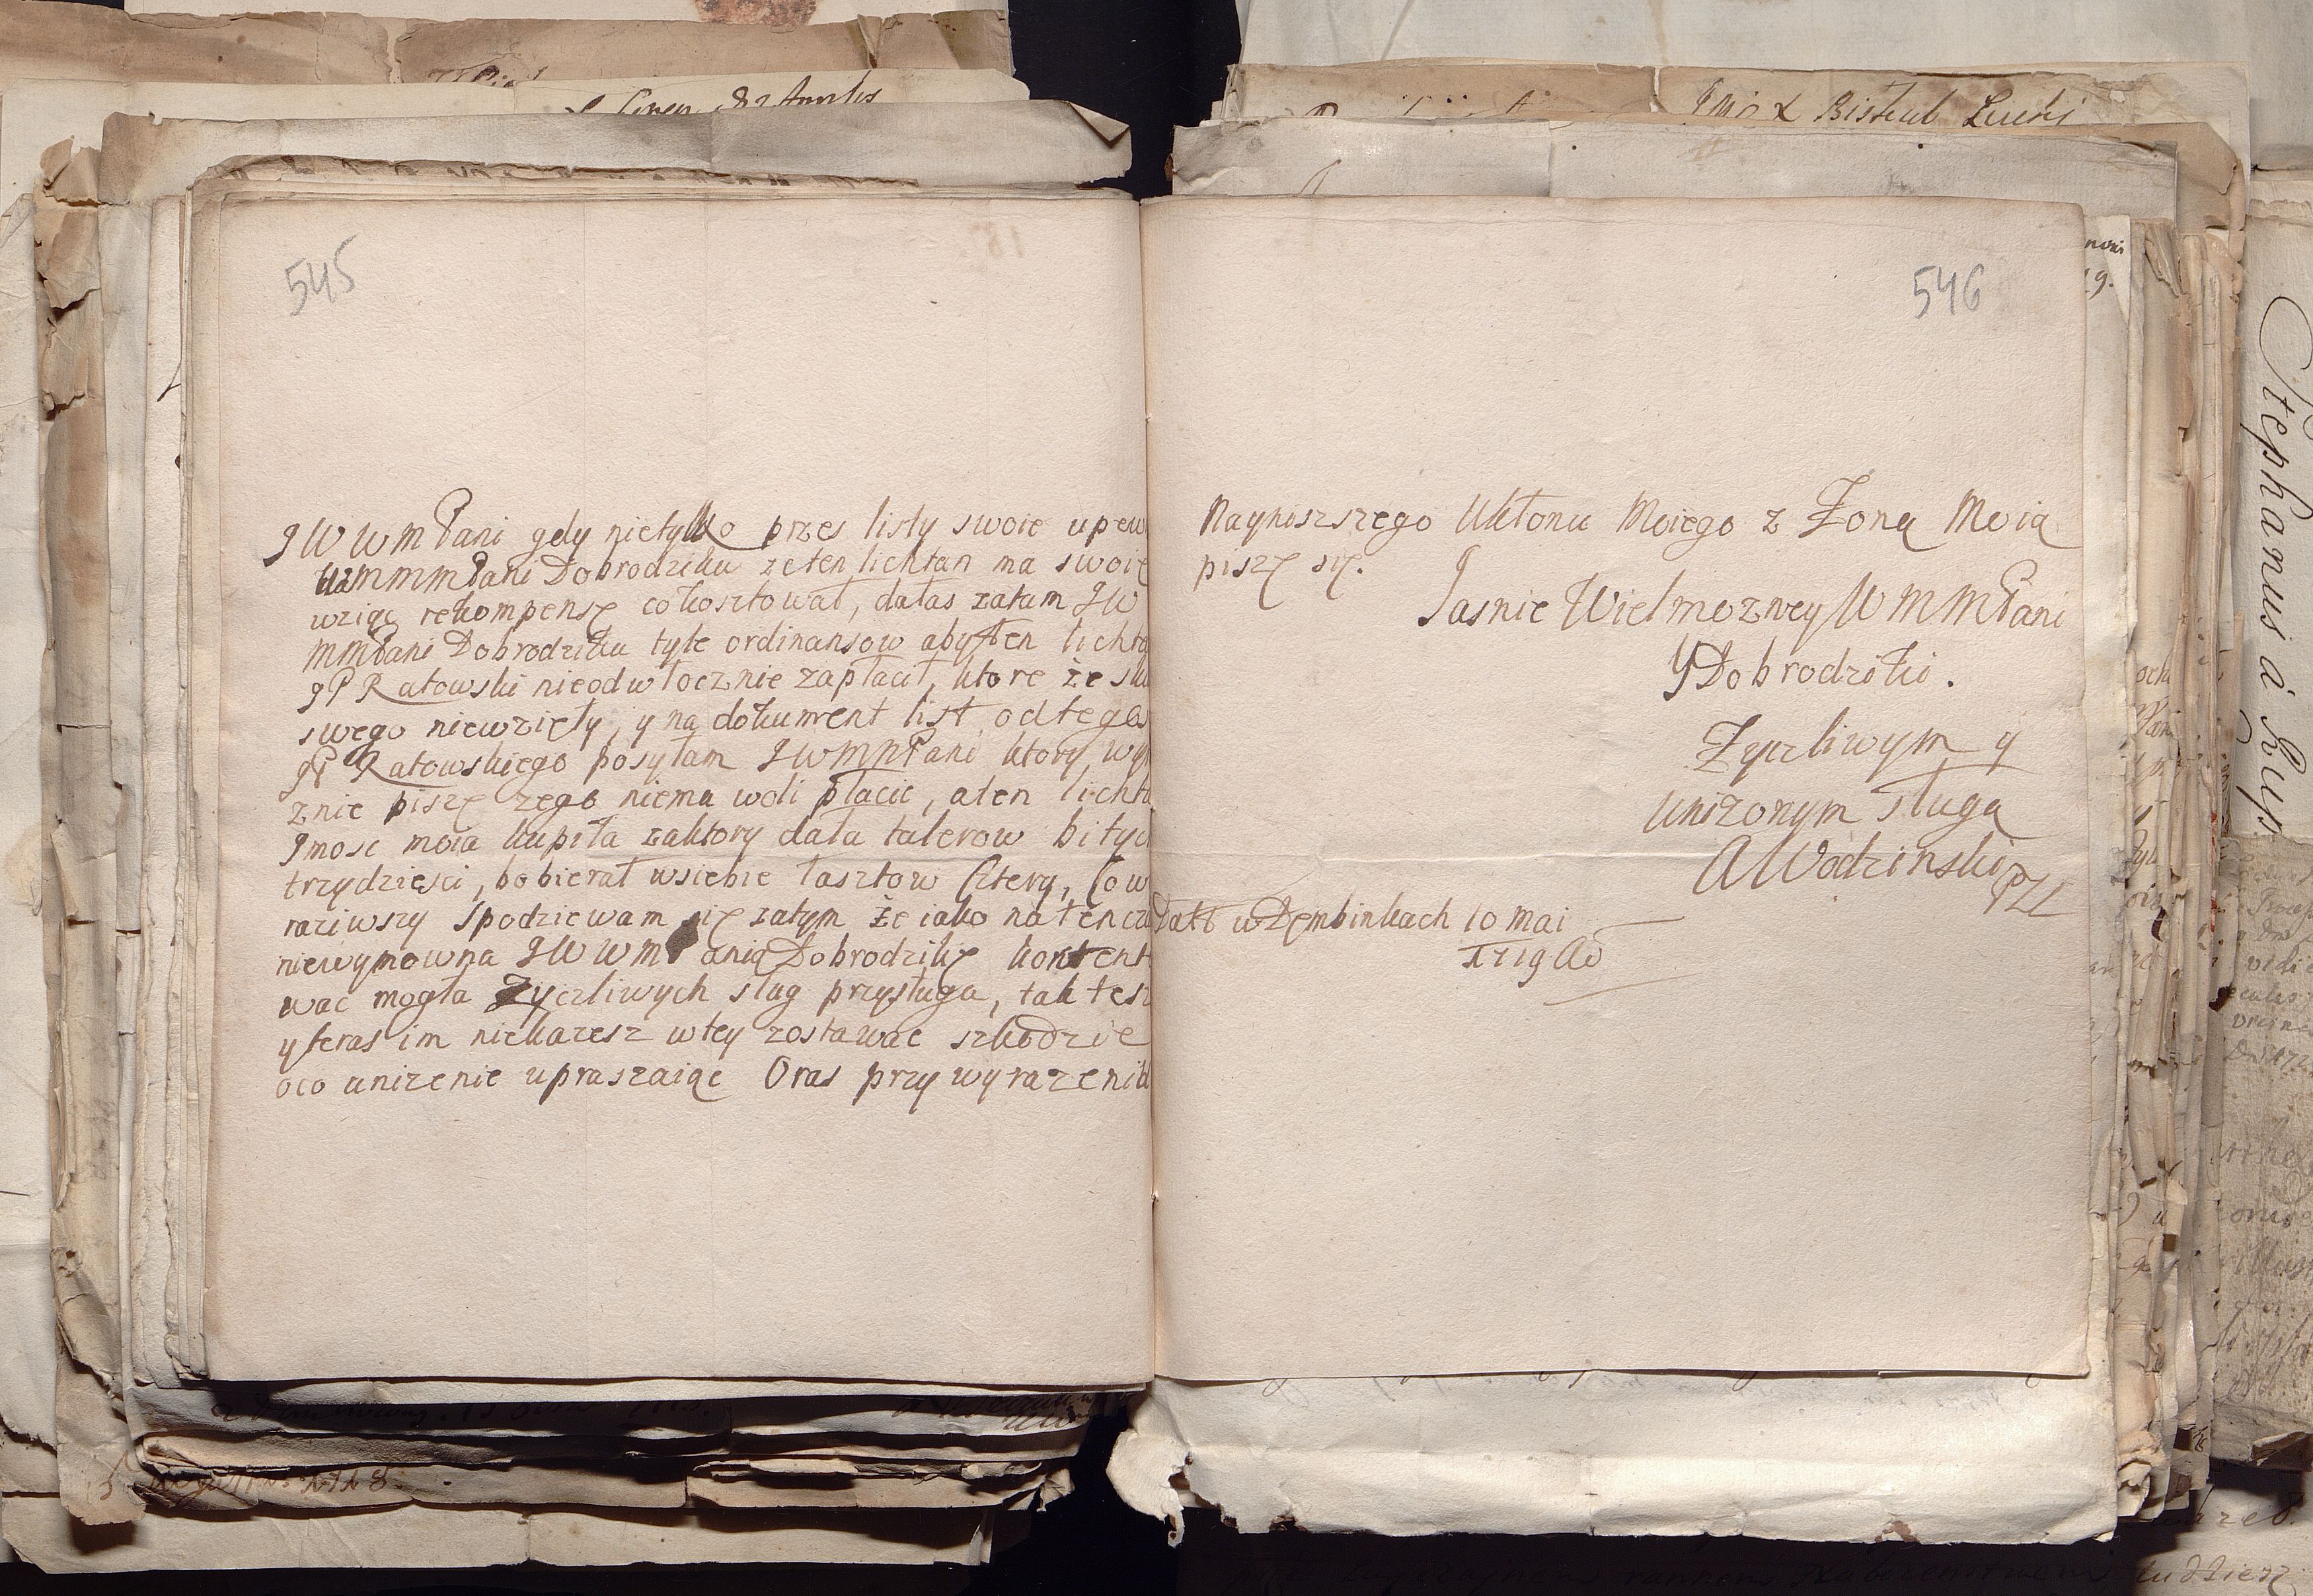 545
JWWMPani gdy nietylko przes listy swoie upew
WaMMMPani Dobrodzika zeten lichtan ma swoię
wziąc rekompensę cokosztował, dałas zatam JW
MMPani Dobrodzika tyle ordinansow abyten lichta
JP Ratowski nieodwłocznie zapłacił, ktore że sku
swego niewzięły, y na dokument list odtegos
JP Ratowskiego posyłam JWMMPani ktory wyr
znie piszę zego niema woli płacic, aten lichta
Jmosc moia kupiła zaktory dała talerow bitych
trzydziesci, bobierał wsiebie łasztow Cztery, Cow
raziwszy Spodziewam się zatym że iako natencza
niewymowna JWWMPanią Dobrodzikę kontento
wac mogła Zyczliwych sług przysługa, tak tesz
y teras im niekazesz wtey zostawac szkodzie
oco unizenie upraszaiąc Oras przy wyrazeniu
546
Nayniszszego Ukłonu Moiego z Żoną Moią
piszę się.
Jasnie Wielmozney WMMPani
y Dobrodziki.
Zyczliwym y
Unizonym sługą
AWodzinski PZL
Datt w Dembinkach 10 Mai
1719 Ao
JMo X Biskub Lucki
Stephanus á Rup
1718